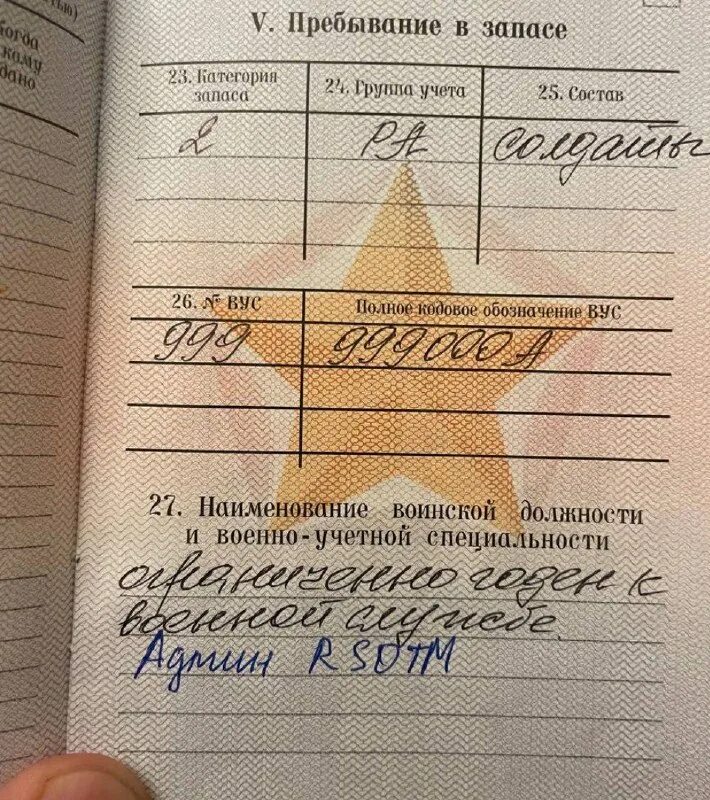 тью)
когда
кому
дано
V. Пребывание в запасе
23. Категория запаса
24. Группа учета
25. Состав
2
РА
солдаты
26. № ВУС
Полное кодовое обозначение ВУС
999
999000А
27. Наименование воинской должности
и военно-учетной специальности
ограниченно годен к
военной службе.
Админ RSOTM